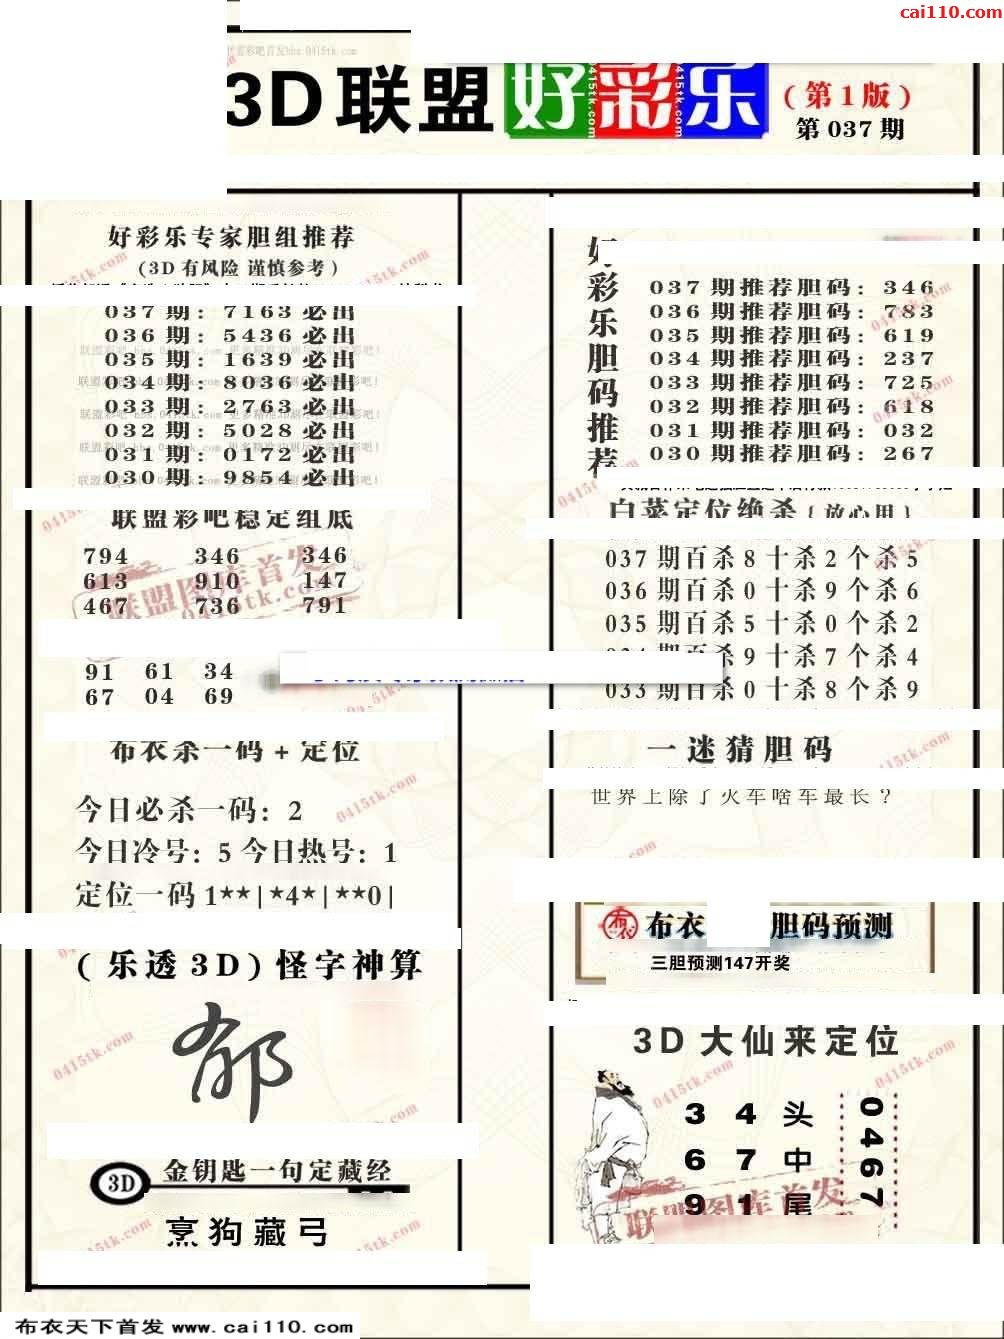 cai110.com
3D联盟好彩乐
(第1版)
第037期
好彩乐专家胆组推荐
(3D有风险 谨慎参考)
037期: 7163必出
036期: 5436必出
035期: 1639必出
034期: 8036必出
033期: 2763必出
032期: 5028必出
031期: 0172必出
030期: 9854必出
联盟彩吧稳定组底
794 346 346
613 910 147
467 736 791
91 61 34
67 04 69
布衣杀一码+定位
今日必杀一码: 2
今日冷号: 5 今日热号: 1
定位一码1**|*4*|**0|
(乐透3D)怪字神算
郁
3D 金钥匙一句定藏经
烹狗藏弓
好彩乐胆码推荐
037期推荐胆码: 346
036期推荐胆码: 783
035期推荐胆码: 619
034期推荐胆码: 237
033期推荐胆码: 725
032期推荐胆码: 618
031期推荐胆码: 032
030期推荐胆码: 267
白菜定位绝杀{放心用}
037期百杀8十杀2个杀5
036期百杀0十杀9个杀6
035期百杀5十杀0个杀2
杀9十杀7个杀4
033期百杀0十杀8个杀9
一迷猜胆码
世界上除了火车啥车最长?
布衣 胆码预测
三胆预测147开奖
3D大仙来定位
3 4 头
6 7 中
9 1 尾
0467
联盟图库首发
0415tk.com
布衣天下首发 www.cai110.com